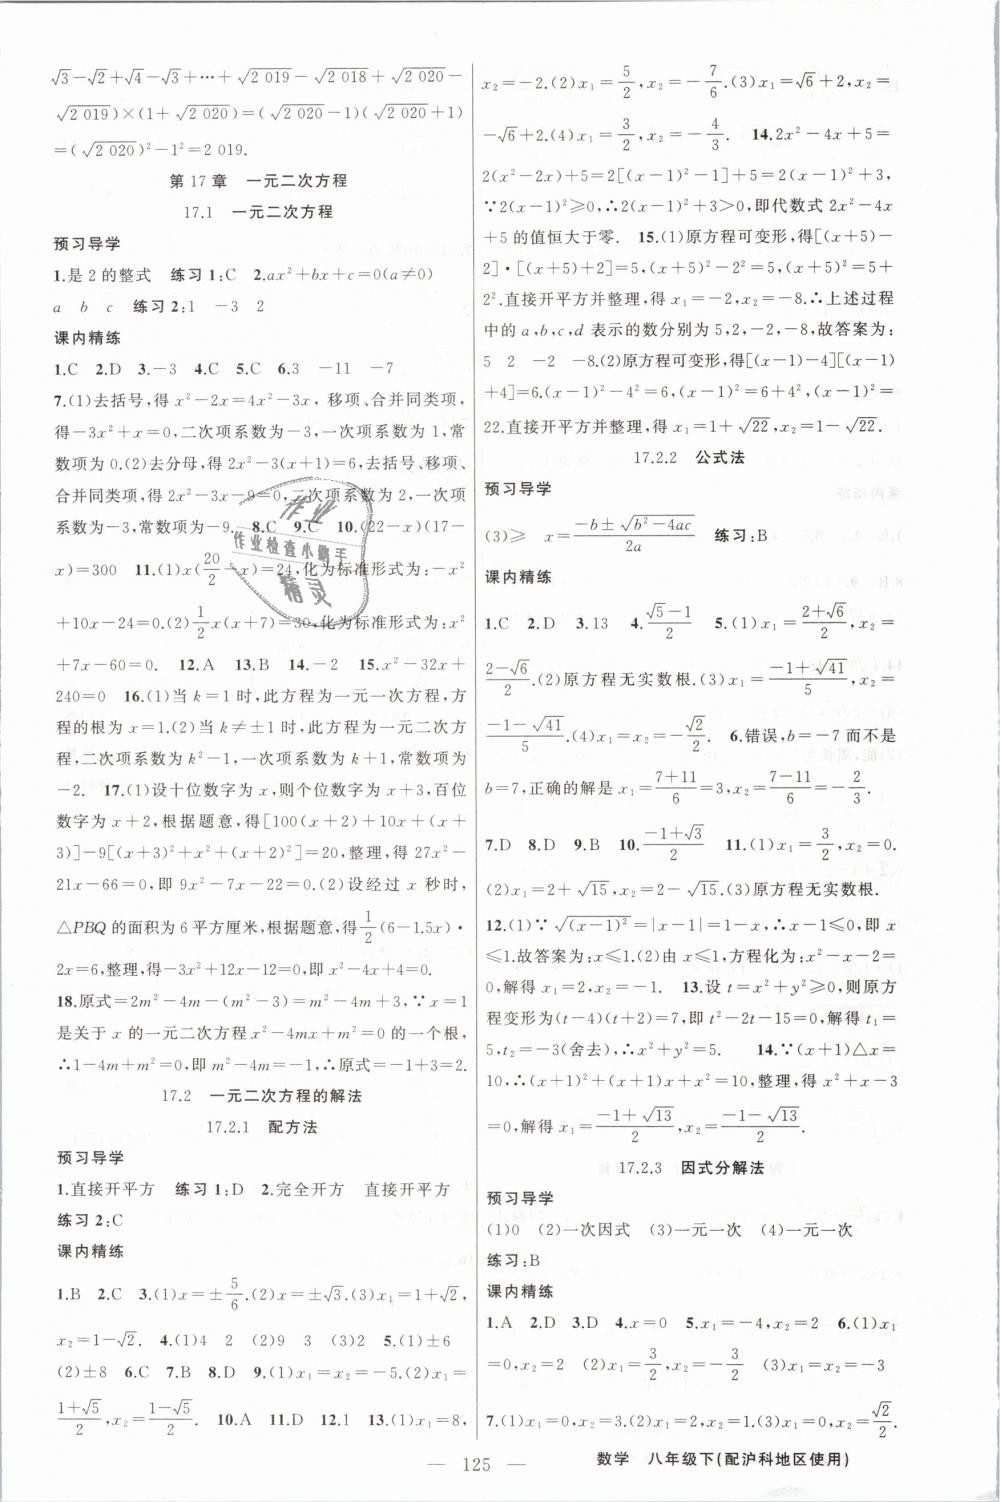 √3－√2＋√4－√3＋…＋√2 019－√2 018＋√2 020－
√2 019)×(1＋√2 020)＝(√2 020－1)(√2 020＋1)
＝(√2 020)²－1²＝2 019.
第17章　一元二次方程
17.1　一元二次方程
预习导学
1.是 2 的整式　练习1:C　2.ax²＋bx＋c＝0(a≠0)
a　b　c　练习2:1　－3　2
课内精练
1.C　2.D　3.－3　4.C　5.C　6.3　－11　－7
7.(1)去括号,得 x²－2x＝4x²－3x, 移项、合并同类项,
得－3x²＋x＝0,二次项系数为－3,一次项系数为 1,常
数项为 0.(2)去分母,得 2x²－3(x＋1)＝6,去括号、移项、
合并同类项,得 2x²－3x－9＝0,二次项系数为 2,一次项
系数为－3,常数项为－9.　8.C　9.C　10.(22－x)(17－
x)＝300　11.(1)x(20/2－x)＝24,化为标准形式为:－x²
＋10x－24＝0.(2)1/2x(x＋7)＝30,化为标准形式为:x²
＋7x－60＝0.　12.A　13.B　14.－2　15.x²－32x＋
240＝0　16.(1)当 k＝1 时,此方程为一元一次方程,方
程的根为 x＝1.(2)当 k≠±1 时,此方程为一元二次方
程,二次项系数为 k²－1,一次项系数为 k＋1,常数项为
－2.　17.(1)设十位数字为 x,则个位数字为 x＋3,百位
数字为 x＋2,根据题意,得[100(x＋2)＋10x＋(x＋
3)]－9[(x＋3)²＋x²＋(x＋2)²]＝20,整理,得 27x²－
21x－66＝0,即 9x²－7x－22＝0.(2)设经过 x 秒时,
△PBQ 的面积为 6 平方厘米,根据题意,得1/2(6－1.5x)·
2x＝6,整理,得－3x²＋12x－12＝0,即 x²－4x＋4＝0.
18.原式＝2m²－4m－(m²－3)＝m²－4m＋3,∵x＝1
是关于 x 的一元二次方程 x²－4mx＋m²＝0 的一个根,
∴1－4m＋m²＝0,即 m²－4m＝－1,∴原式＝－1＋3＝2.
17.2　一元二次方程的解法
17.2.1　配方法
预习导学
1.直接开平方　练习1:D　2.完全开方　直接开平方
练习2:C
课内精练
1.B　2.C　3.(1)x＝±5/6.(2)x＝±√3.(3)x₁＝1＋√2,
x₂＝1－√2.　4.(1)4　2　(2)9　3　(3)2　5.(1)±6
(2)±8　6.C　7.B　8.D　9.(1)x₁＝x₂＝－5.(2)x₁＝
(1＋√5)/2,x₂＝(1－√5)/2.　10.A　11.D　12.1　13.(1)x₁＝8,
x₂＝－2.(2)x₁＝5/2,x₂＝－7/6.(3)x₁＝√6＋2,x₂＝
－√6＋2.(4)x₁＝3/2,x₂＝－4/3.　14.2x²－4x＋5＝
2(x²－2x)＋5＝2[(x－1)²－1]＋5＝2(x－1)²＋3,
∵2(x－1)²≥0,∴2(x－1)²＋3＞0,即代数式 2x²－4x
＋5 的值恒大于零.　15.(1)原方程可变形,得[(x＋5)－
2]·[(x＋5)＋2]＝5,(x＋5)²－2²＝5,(x＋5)²＝5＋
2².直接开平方并整理,得 x₁＝－2,x₂＝－8.∴上述过程
中的 a,b,c,d 表示的数分别为 5,2,－2,－8,故答案为:
5　2　－2　－8.(2)原方程可变形,得[(x－1)－4][(x－1)
＋4]＝6.(x－1)²－4²＝6,(x－1)²＝6＋4²,(x－1)²＝
22.直接开平方并整理,得 x₁＝1＋√22,x₂＝1－√22.
17.2.2　公式法
预习导学
(3)≥　x＝(－b±√b²－4ac)/2a　练习:B
课内精练
1.C　2.D　3.13　4.(√5－1)/2　5.(1)x₁＝(2＋√6)/2,x₂＝
(2－√6)/2.(2)原方程无实数根.(3)x₁＝(－1＋√41)/5,x₂＝
(－1－√41)/5.(4)x₁＝x₂＝－√2/2.　6.错误,b＝－7 而不是
b＝7,正确的解是 x₁＝(7＋11)/6＝3,x₂＝(7－11)/6＝－2/3
7.D　8.D　9.B　10.(－1＋√3)/2　11.(1)x₁＝3/2,x₂＝0.
(2)x₁＝2＋√15,x₂＝2－√15.(3)原方程无实数根.
12.(1)∵√(x－1)²＝|x－1|＝1－x,∴x－1≤0,即 x
≤1.故答案为:x≤1.(2)由 x≤1,方程化为:x²－x－2＝
0,解得 x₁＝2,x₂＝－1.　13.设 t＝x²＋y²≥0,则原方
程变形为(t－4)(t＋2)＝7,即 t²－2t－15＝0,解得 t₁＝
5,t₂＝－3(舍去),∴x²＋y²＝5.　14.∵(x＋1)△x＝
10,∴(x＋1)²＋(x＋1)x－x²＝10,整理,得 x²＋x－3
＝0,解得 x₁＝(－1＋√13)/2,x₂＝(－1－√13)/2.
17.2.3　因式分解法
预习导学
(1)0　(2)一次因式　(3)一元一次　(4)一元一次
练习:B
课内精练
1.A　2.D　3.D　4.x＝0　5.x₁＝－4,x₂＝2　6.(1)x₁
＝0,x₂＝2　(2)x₁＝3/2,x₂＝－3/2　(3)x₁＝x₂＝－3
7.(1)x₁＝0,x₂＝3.(2)x₁＝2,x₂＝1.(3)x₁＝0,x₂＝√2/2.
— 125 —
数学　八年级下(配沪科地区使用)